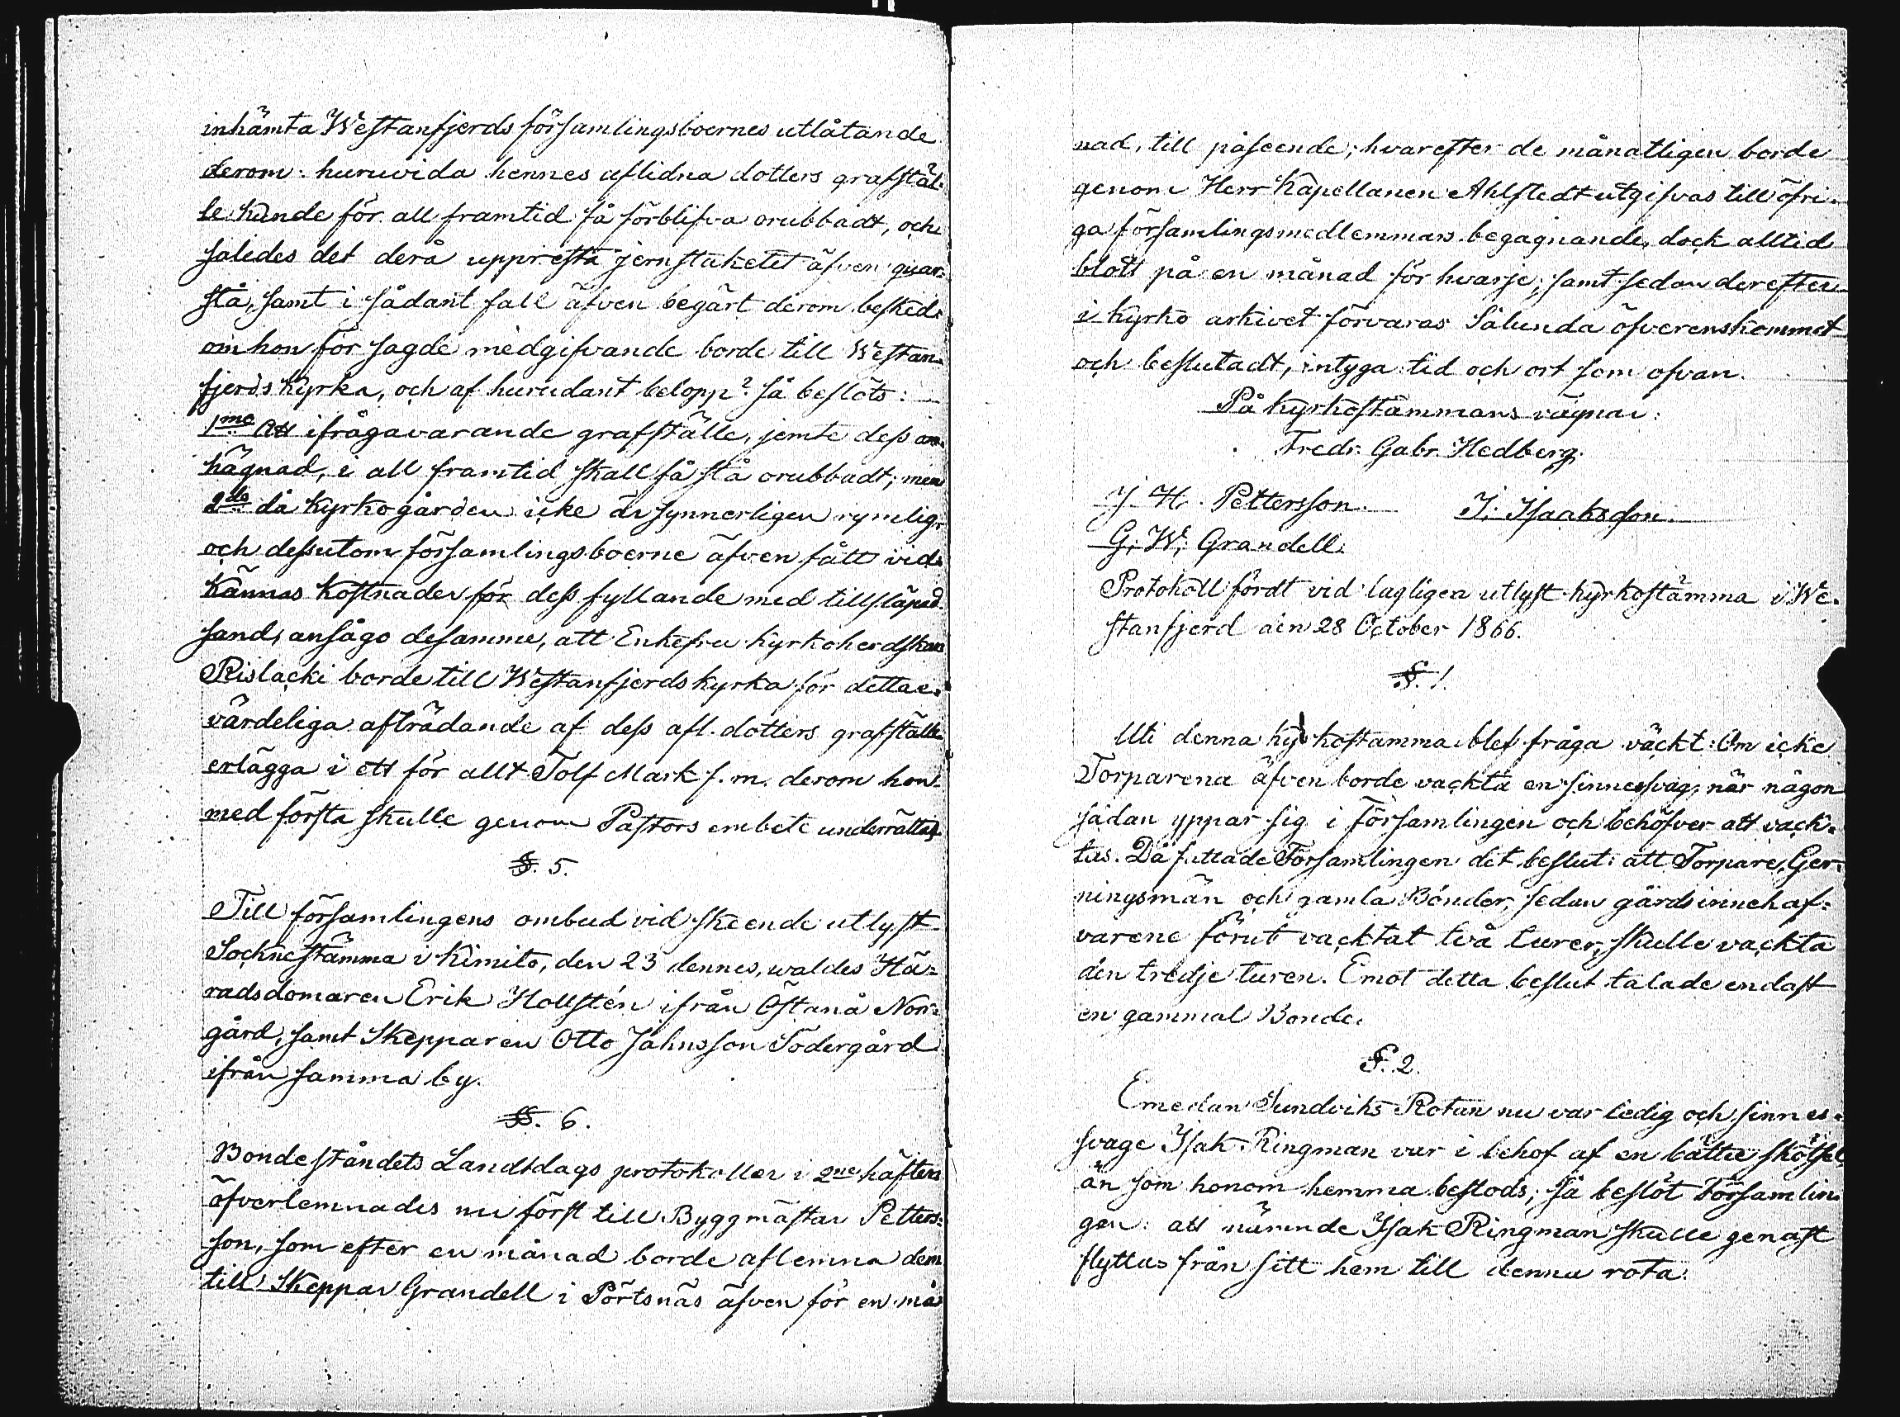 inhämta Westanfjerds församlingsboernes utlåtande
derom: huruvida hennes aflidna dotters grafstäl-
le kunde för all framtid få förblifva orubbadt, och
således det derå uppresta jernstaketet äfven qvar-
stå, samt i sådant fall äfven begärt derom besked,
om hon för sagde medgifvande borde till Westan-
fjerds Kyrka, och af hurudant belopp? Så beslöts:
1mo Att ifrågavarande grafställe, jemte dess in-
hägnad, i all framtid skall få stå orubbadt; men
2do då Kyrkogården icke är synnerligen rymlig,
och dessutom församlingsboerne äfven fått vid-
kännas kostnader för dess fyllande med tillsläpad
sand, ansågo desamme, att Enkefru Kyrkoherdskan
Rislacki borde till Westanfjerds kyrka för detta e-
värdeliga afträdande af dess afl. dotters grafställe
erlägga i ett för allt Tolf Mark f. m. derom hon
med första skulle genom Pastors embete underrättas.
§. 5.
Till församlingens ombud vid skeende utlyst
Socknestämma i Kimito, den 23 dennes, waldes Hä-
radsdomaren Erik Hollstén ifrån Östanå Norr-
gård, samt Skepparen Otto Jahnsson Södergård
ifrån samma by.
§. 6.
Bondeståndets Landtdags protokoller i 2ne häften
öfverlemnades nu först till Byggmästar Petters-
son, som efter en månad borde aflemna dem
till Skeppar Grandell i Pörtsnäs äfven för en må-
nad, till påseende; hvarefter de månatligen borde
genom Herr Kapellanen Ahlstedt utgifvas till öfri-
ga församlingsmedlemmars begagnande, dock alltid
blott på en månad för hvarje, samt sedan derefter
i kyrko arkivet förvaras Sålunda öfverenskommet
och beslutadt, intyga tid och ort som ofvan.
På kyrkostämmans vägnar:
Fredr. Gabr. Hedberg.
J. H. Pettersson. J. Isaaksson.
G. W. Grandell.
Protokoll fördt vid lagligen utlyst kyrkostämma i We-
stanfjerd den 28 October 1866.
§. 1.
Uti denna kyrkostämma blef fråga väckt: Om icke
Torparena äfven borde vackta en sinnessvag, när någon
sådan yppar sig i Församlingen och behöfver att vack-
tas. Då fattade Församlingen det beslut: att Torpare, Ger-
ningsmän och gamla Bönder, sedan gårdsinnehaf-
varene förut vacktat två turer, skulle vackta
den tredje turen. Emot detta beslut talade endast
en gammal Bonde.
§. 2.
Emedan Sundviks Rotan nu var ledig och sinnes-
svage Isak Ringman var i behof af en bättre skötsel
än som honom hemma bestods; så beslöt Församlin-
gen: att nämnde Isak Ringman skulle genast
flyttas från sitt hem till denna rota.